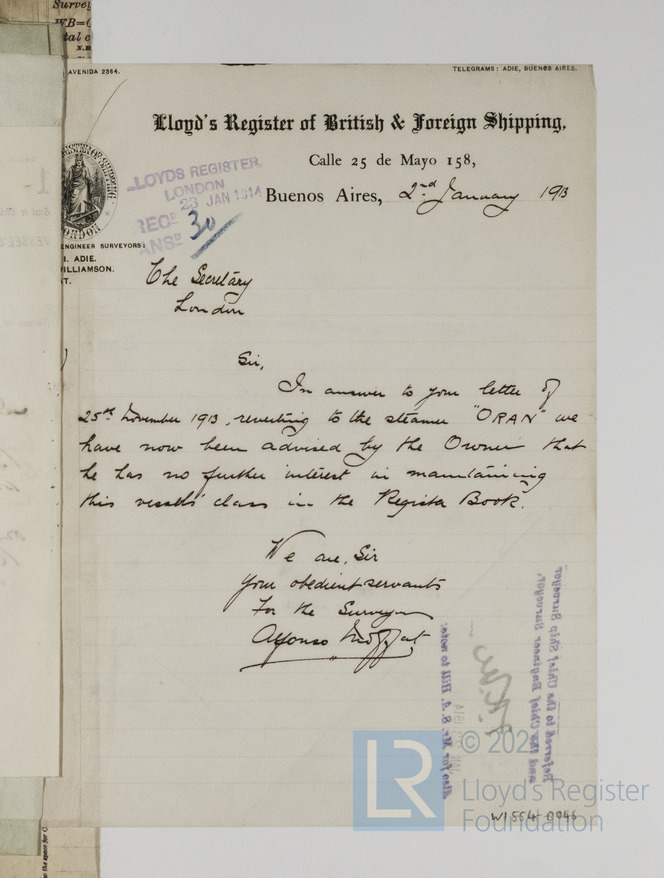 Survey
WB=
tal c
AVENIDA 2364.
TELEGRAMS: ADIE, BUENOS AIRES.
Lloyd's Register of British & Foreign Shipping,
Calle 25 de Mayo 158,
Buenos Aires, 2nd January 1913
LLOYDS REGISTER
LONDON
REC'D 23 JAN 1914
ANSD 30
LONDON
ENGINEER SURVEYORS:
I. ADIE.
ILLIAMSON.
T.
The Secretary
London
Sir,
In answer to your letter of
25th November 1913, reverting to the steamer "ORAN" we
have now been advised by the Owner that
he has no further interest in maintaining
this vessels' class in the Register Book.
We are, Sir
Your obedient servants
For the Surveyors
Alfonso
Referred to the Chief Ship Surveyor
and the Chief Engineer Surveyor.
Also for Mr. S. J. Hill to note.
© 202
LR
Lloyd's Register
Foundation
W1554-0046
the space for